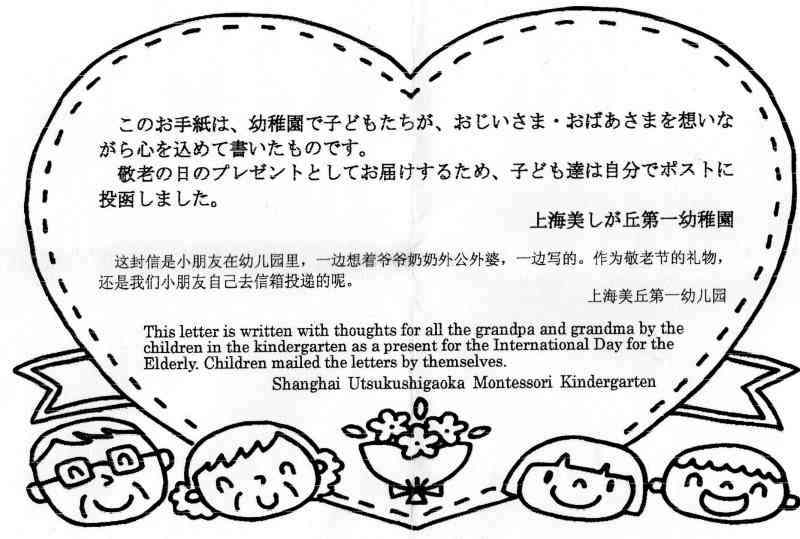 このお手紙は、幼稚園で子どもたちが、おじいさま・おばあさまを想いな
がら心を込めて書いたものです。
敬老の日のプレゼントとしてお届けするため、子ども達は自分でポストに
投函しました。
上海美しが丘第一幼稚園
这封信是小朋友在幼儿园里，一边想着爷爷奶奶外公外婆，一边写的。作为敬老节的礼物，
还是我们小朋友自己去信箱投递的呢。
上海美丘第一幼儿园
This letter is written with thoughts for all the grandpa and grandma by the
children in the kindergarten as a present for the International Day for the
Elderly. Children mailed the letters by themselves.
Shanghai Utsukushigaoka Montessori Kindergarten